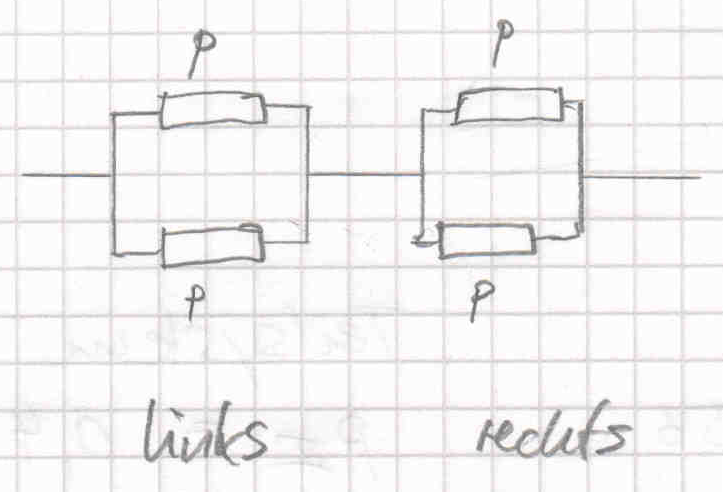 p p
p p
links rechts